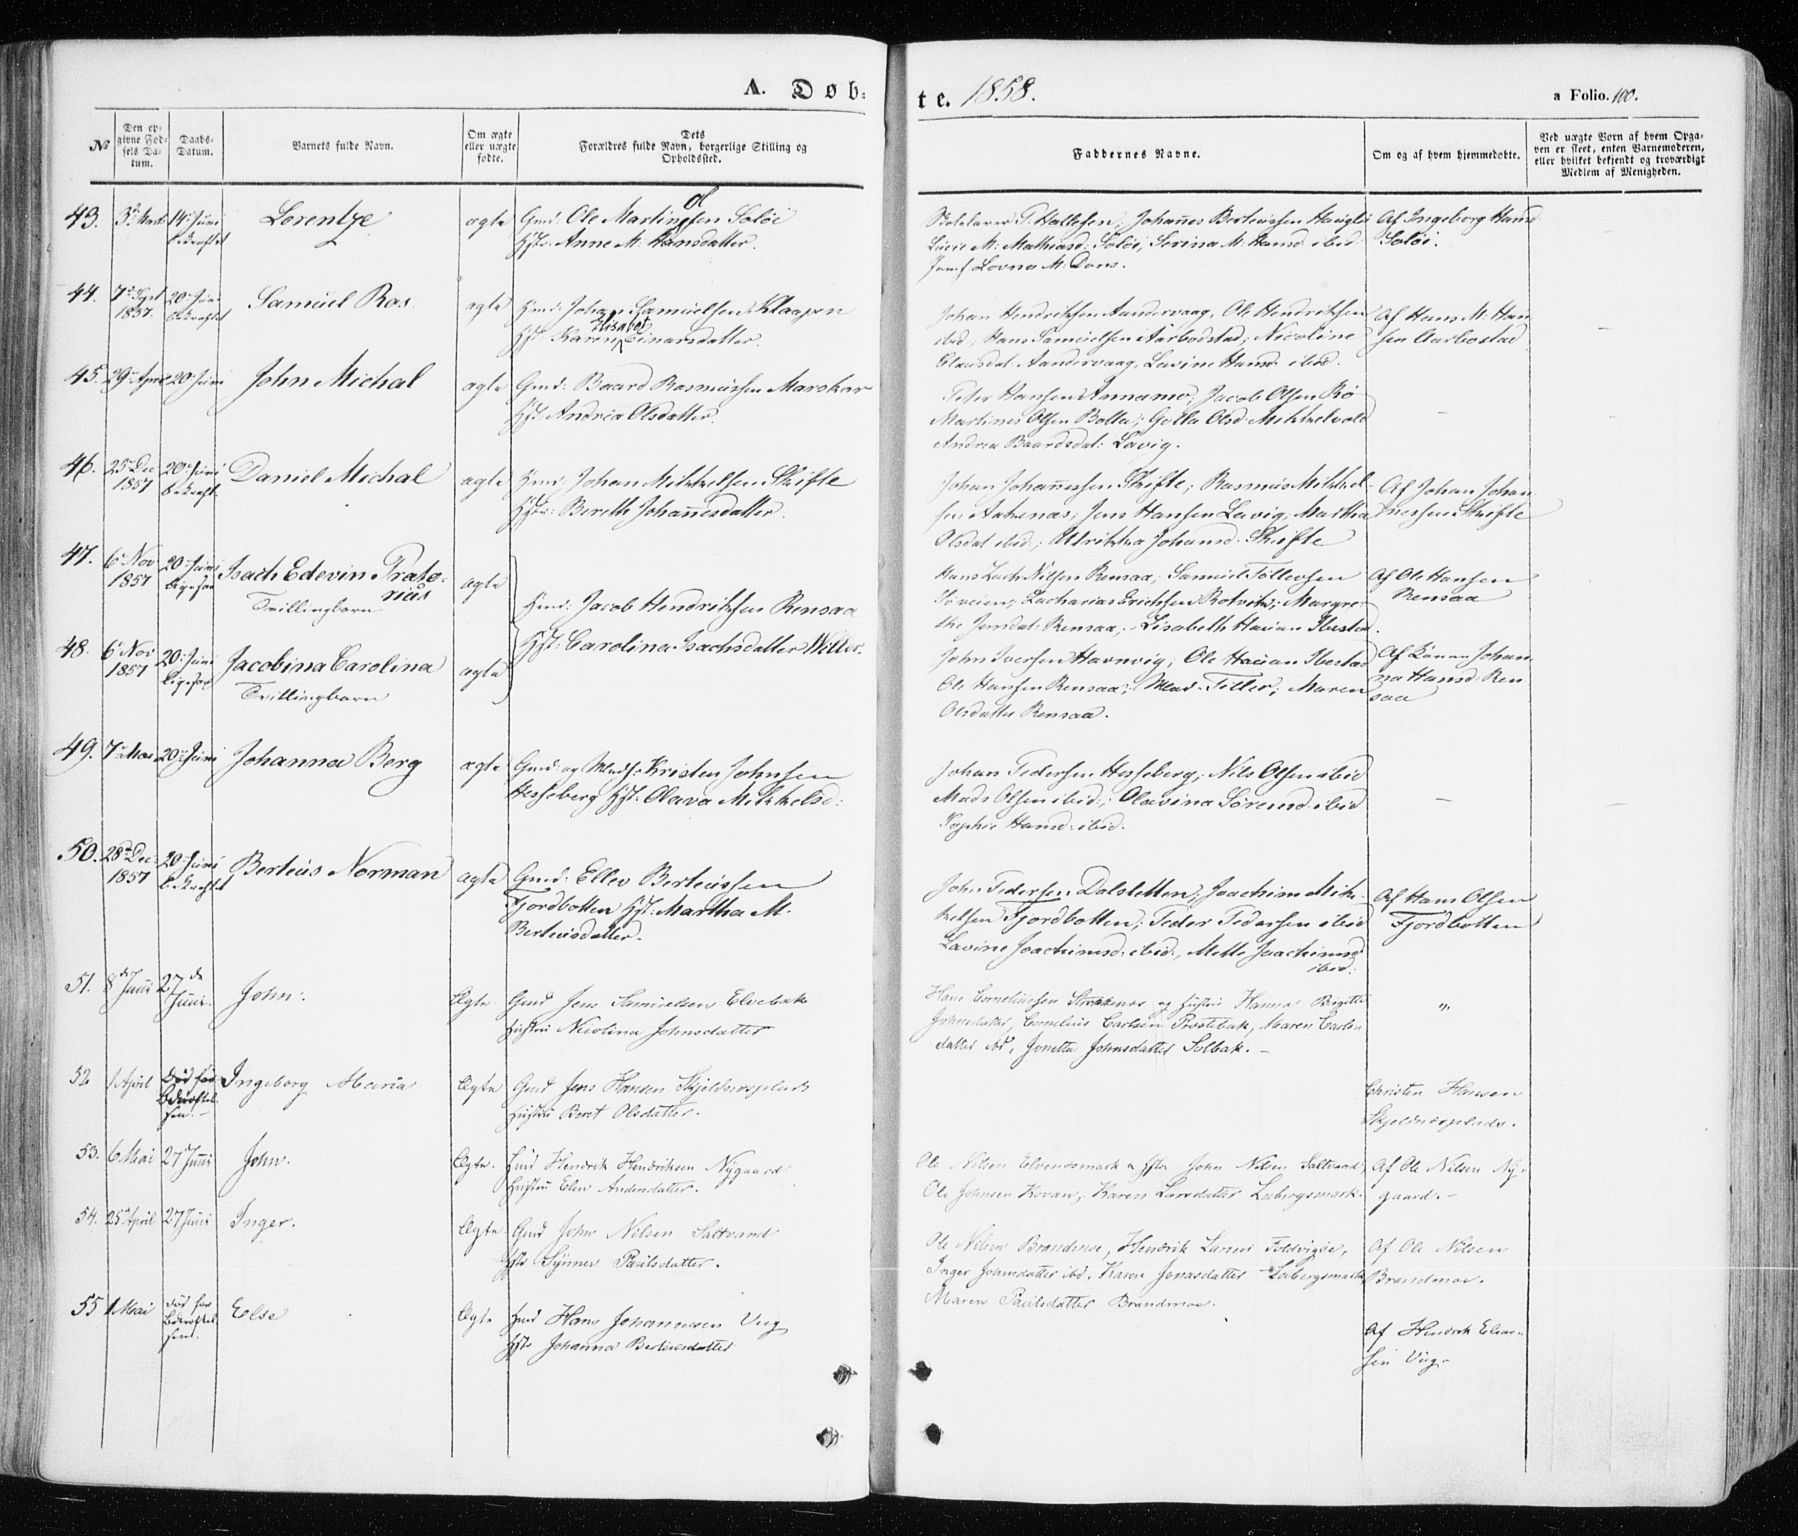 A. Døb-
te. 1858.
a Folio. 100.
№
Den op-
givne Fød-
sels Da-
tum.
Daabs-
Datum.
Barnets fulde Navn.
Om ægte
eller uægte
fødte.
Dets
Forældres fulde Navn, borgerlige Stilling og
Opholdssted.
Faddernes Navne.
Om og af hvem hjemmedøbte.
Ved uægte Børn af hvem Opga-
ven er skeet, enten Barnemoderen,
eller hvilket bekjendt og troværdigt
Medlem af Menigheden.
43. 14 Juni Lorentze ægte Gmd: Ole Martin Olsen Soløi
Hst: Anne M. Hansdatter.
T. Hallesen; Johannes Berteussen
Lucie M: Mathiasd: Soløi, Serina M. Hansd ibid
Jomf Lovna M. Dons.
Af Ingeborg Hansd
Soløi.
44. 7 Sept 1857. 20 Juni Samuel Ras. ægte Gmd: Johan Samuelsen Klaapen
Hst Karen Elisabet Einarsdatter.
Johan Hendriksen Aandervaag, Ole Hendriksen
ibid, Hans Samuelsen Aarbodstad; Nicoline
Aandervaag, Lavine Hansd: ibid.
Af Hans M: Han-
sen Aarbostad
45. 29 April 20 Juni John Michal ægte Gmd: Baard Rasmussen Marskar
Hst. Andrea Olsdatter.
Peter Hansen Annamo; Jacob Olsen Rø
Martinus Olsen Bolla; Olsd Mikkelvold
Andrea Baardsdat: Lavig.
46. 25 Dec 1857 20 Juni bekræft. Daniel Michal ægte Gmd: Johan Mikkelsen Skifte
Hst: Bereth Johannesdatter.
Johan Johannessen Skifte; Rasmus Mikkel-
sen Aakenæs; Jens Hansen Lavig, Martha
Olsdat ibid; Ulrikka Johansd. Skifte
Af Johan Johan-
nessen Skifte
47. 6 Nov 1857 20 Juni ligesaa Isach Edevin Præto-
rius
Tvillingbarn
ægte
Gmd: Jacob Hendriksen Rensaa
Hst: Carolina Isachsdatter
Hans Zach Nilsen Rensaa; Samuel Tollevsen
Søveien; Zacharias Erichsen Rotvik; Margre-
the Jensdat: Rensaa; Lisabeth Ibestad.
Af Ole Hansen
Rensaa
48. 6 Nov 1857 20 Juni ligesaa Jacobina Carolina
Tvillingbarn
ægte
John Iversen Havnvig; Ole Ibestad
Ole Hansen Rensaa; Mad. Tiller; Maren
Olsdatter Rensaa.
Af Johan-
na Hansd Ren-
saa
49. 7 Mai 20 Juni Johanna Berg ægte Gmd: og Kristen Johnsen
Hesseberg Hst. Olava Mikkelsd:
Johan Pedersen Hesseberg; Nils Olsen ibid
Mads Olsen ibid; Olavina Sørensd: ibid
Sophie Hansd: ibid.
50. 28 Dec: 1857 20 Juni bekræftet Berteus Norman ægte Gmd: Ellev Berteussen
Fjordbotten Hst: Martha M.
Berteusdatter.
John Pedersen Dalsletten; Joachim Mik-
kelsen Fjordbotten; Peder Pedersen ibid
Lavine Joachimsd: ibid, Mette Joachimsd
ibid:
Af Hans Olsen
Fjordbotten
51. 8 de Juni 27 de Juni. John. Ægte Gmd Jens Samuelsen Elvebak
Hustru Nicolina Johnsdatter
Hans Corneliussen og Hustru Hanna Birgitte
Johnsdatter, Cornelius Carlsen Prestebak, Maren Carls-
datter ibd, Jonetta Johnsdatter Solbak. –
"
52 1 April Død før
Bekræftel-
sen. – Ingeborg Maria Ægte Gmd Jens Hansen Skjeldnæsplads
Hustru Beret Olsdatter.
Christen Hansen
Skjeldnæsplads.
53. 6 Mai 27 Juni John. Ægte. Gmd Hendrik Hendriksen Nygaard
Hustru Elen Andersdatter.
Ole Nilsen Elvenesmark John Nilsen Saltvand,
Ole Johnsen Kovan, Karen Larsdatter Labergsmark.
Af Ole Nilsen Ny-
gaard. –
54. 25 April 27 Juni Inger. Ægte Gmd John Nilsen Saltvand
Hst Synnev Paulsdatter.
Ole Nilsen Brandmoe, Hendrik Larsen Foldvigøe,
Inger Johnsdatter ibd, Karen Jonasdatter Labergsmark,
Maren Paulsdatter Brandmoe.
Af Ole Nilsen
Brandmoe.
55 1 Mai Død før
Bekræftel-
sen. Else Ægte Gmd Hans Johannesen Vug
Hst Johanna Berteusdatter
Af Hendrik Elias-
sen Vug.